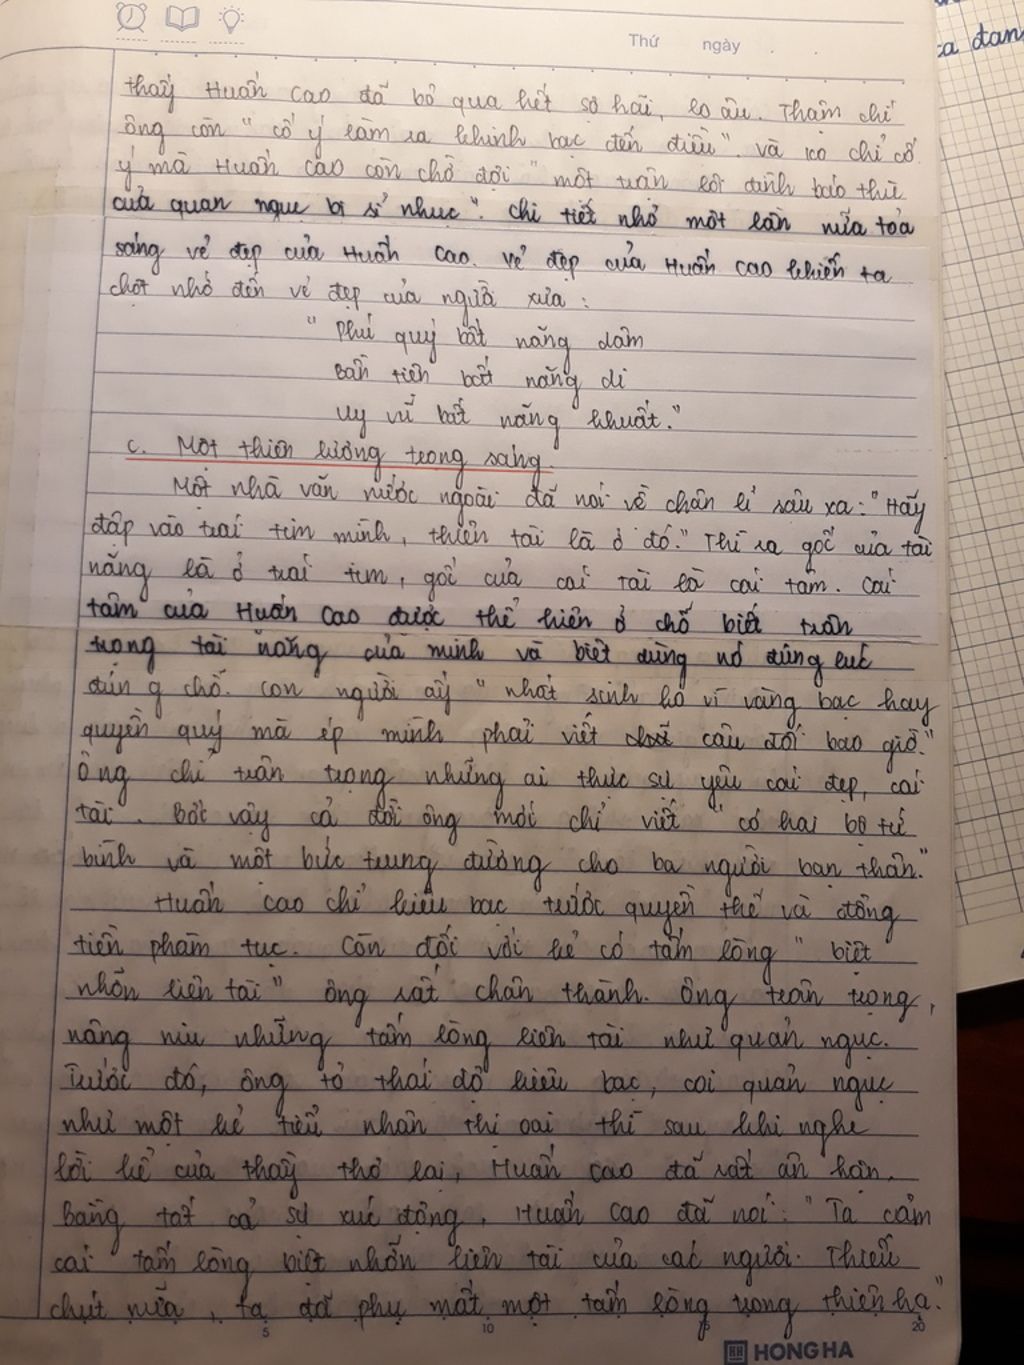 Thứ ngày . .
ca đan
thấy Huấn Cao đã bỏ qua hết sợ hãi, lo âu. Thậm chí
ông còn " cố ý làm ra khinh bạc đến điều". Và ko chỉ cố
ý mà Huấn Cao còn chờ đợi " một trận lôi đình báo thù
của quan ngục bị sỉ nhục". Chi tiết nhỏ một lần nữa tỏa
sáng vẻ đẹp của Huấn Cao. Vẻ đẹp của Huấn Cao khiến ta
chợt nhớ đến vẻ đẹp của người xưa :
" Phú quý bất năng dâm
Bần tiện bất năng di
Uy vũ bất năng khuất."
c. Một thiên lương trong sáng.
Một nhà văn nước ngoài đã nói về chân lí sâu xa: "Hãy
đập vào trái tim mình, thiên tài là ở đó." Thì ra gốc của tài
năng là ở trái tim, gốc của cái tài là cái tâm. Cái
tâm của Huấn Cao được thể hiện ở chỗ biết trân
trọng tài năng của mình và biết dùng nó đúng lúc
đúng chỗ. Con người ấy " nhất sinh ko vì vàng bạc hay
quyền quý mà ép mình phải viết câu đối bao giờ."
Ông chỉ trân trọng những ai thực sự yêu cái đẹp, cái
tài . Bởi vậy cả đời ông mới chỉ viết " có hai bộ tứ
bình và một bức trung đường cho ba người bạn thân."
Huấn Cao chỉ kiêu bạc trước quyền thế và đồng
tiền phàm tục. Còn đối với kẻ có tấm lòng " biệt
nhỡn liên tài" ông rất chân thành. Ông trân trọng,
nâng niu những tấm lòng liên tài như quản ngục.
Trước đó, ông tỏ thái độ kiêu bạc, coi quản ngục
như một kẻ tiểu nhân thị oai thì sau khi nghe
lời kể của thầy thơ lại, Huấn Cao đã rất ân hận.
Bằng tất cả sự xúc động, Huấn Cao đã nói: " Ta cảm
cái tấm lòng biệt nhỡn liên tài của các người. Thiếu
chút nữa, ta đã phụ mất một tấm lòng trong thiên hạ."
5 10 20
HONG HA